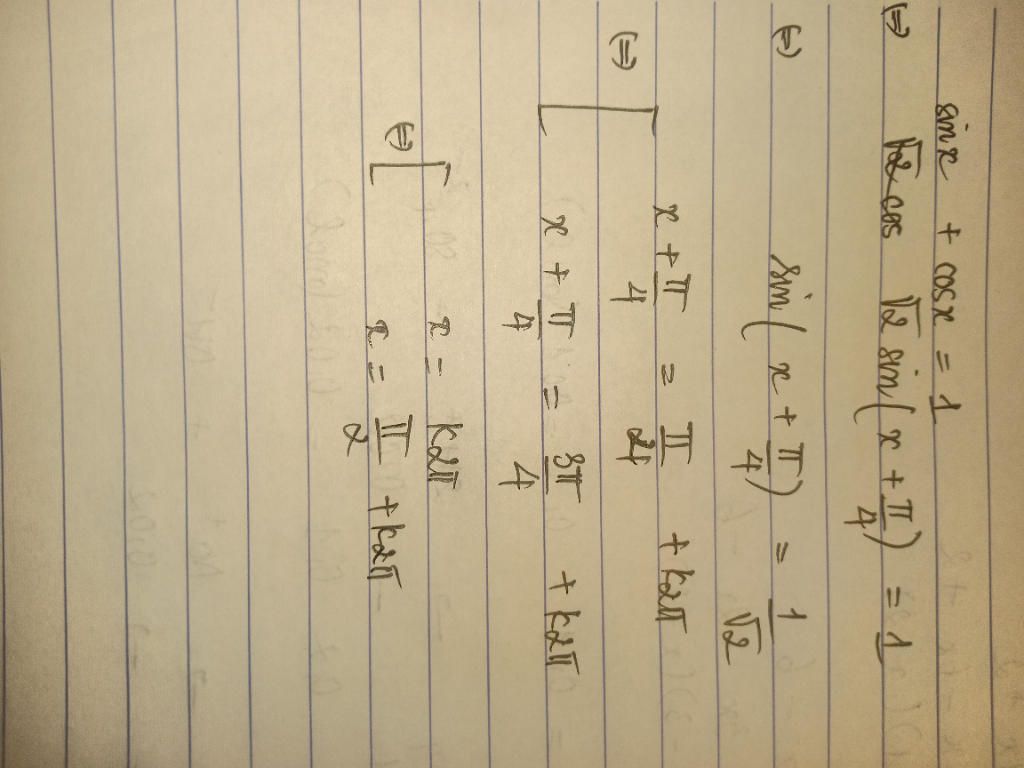 sinx + cosx = 1
(=) √2 sin(x + π/4) = 1
(=) sin(x + π/4) = 1/√2
(=) [ x + π/4 = π/4 + k2π
x + π/4 = 3π/4 + k2π
(=) [ x = k2π
x = π/2 + k2π